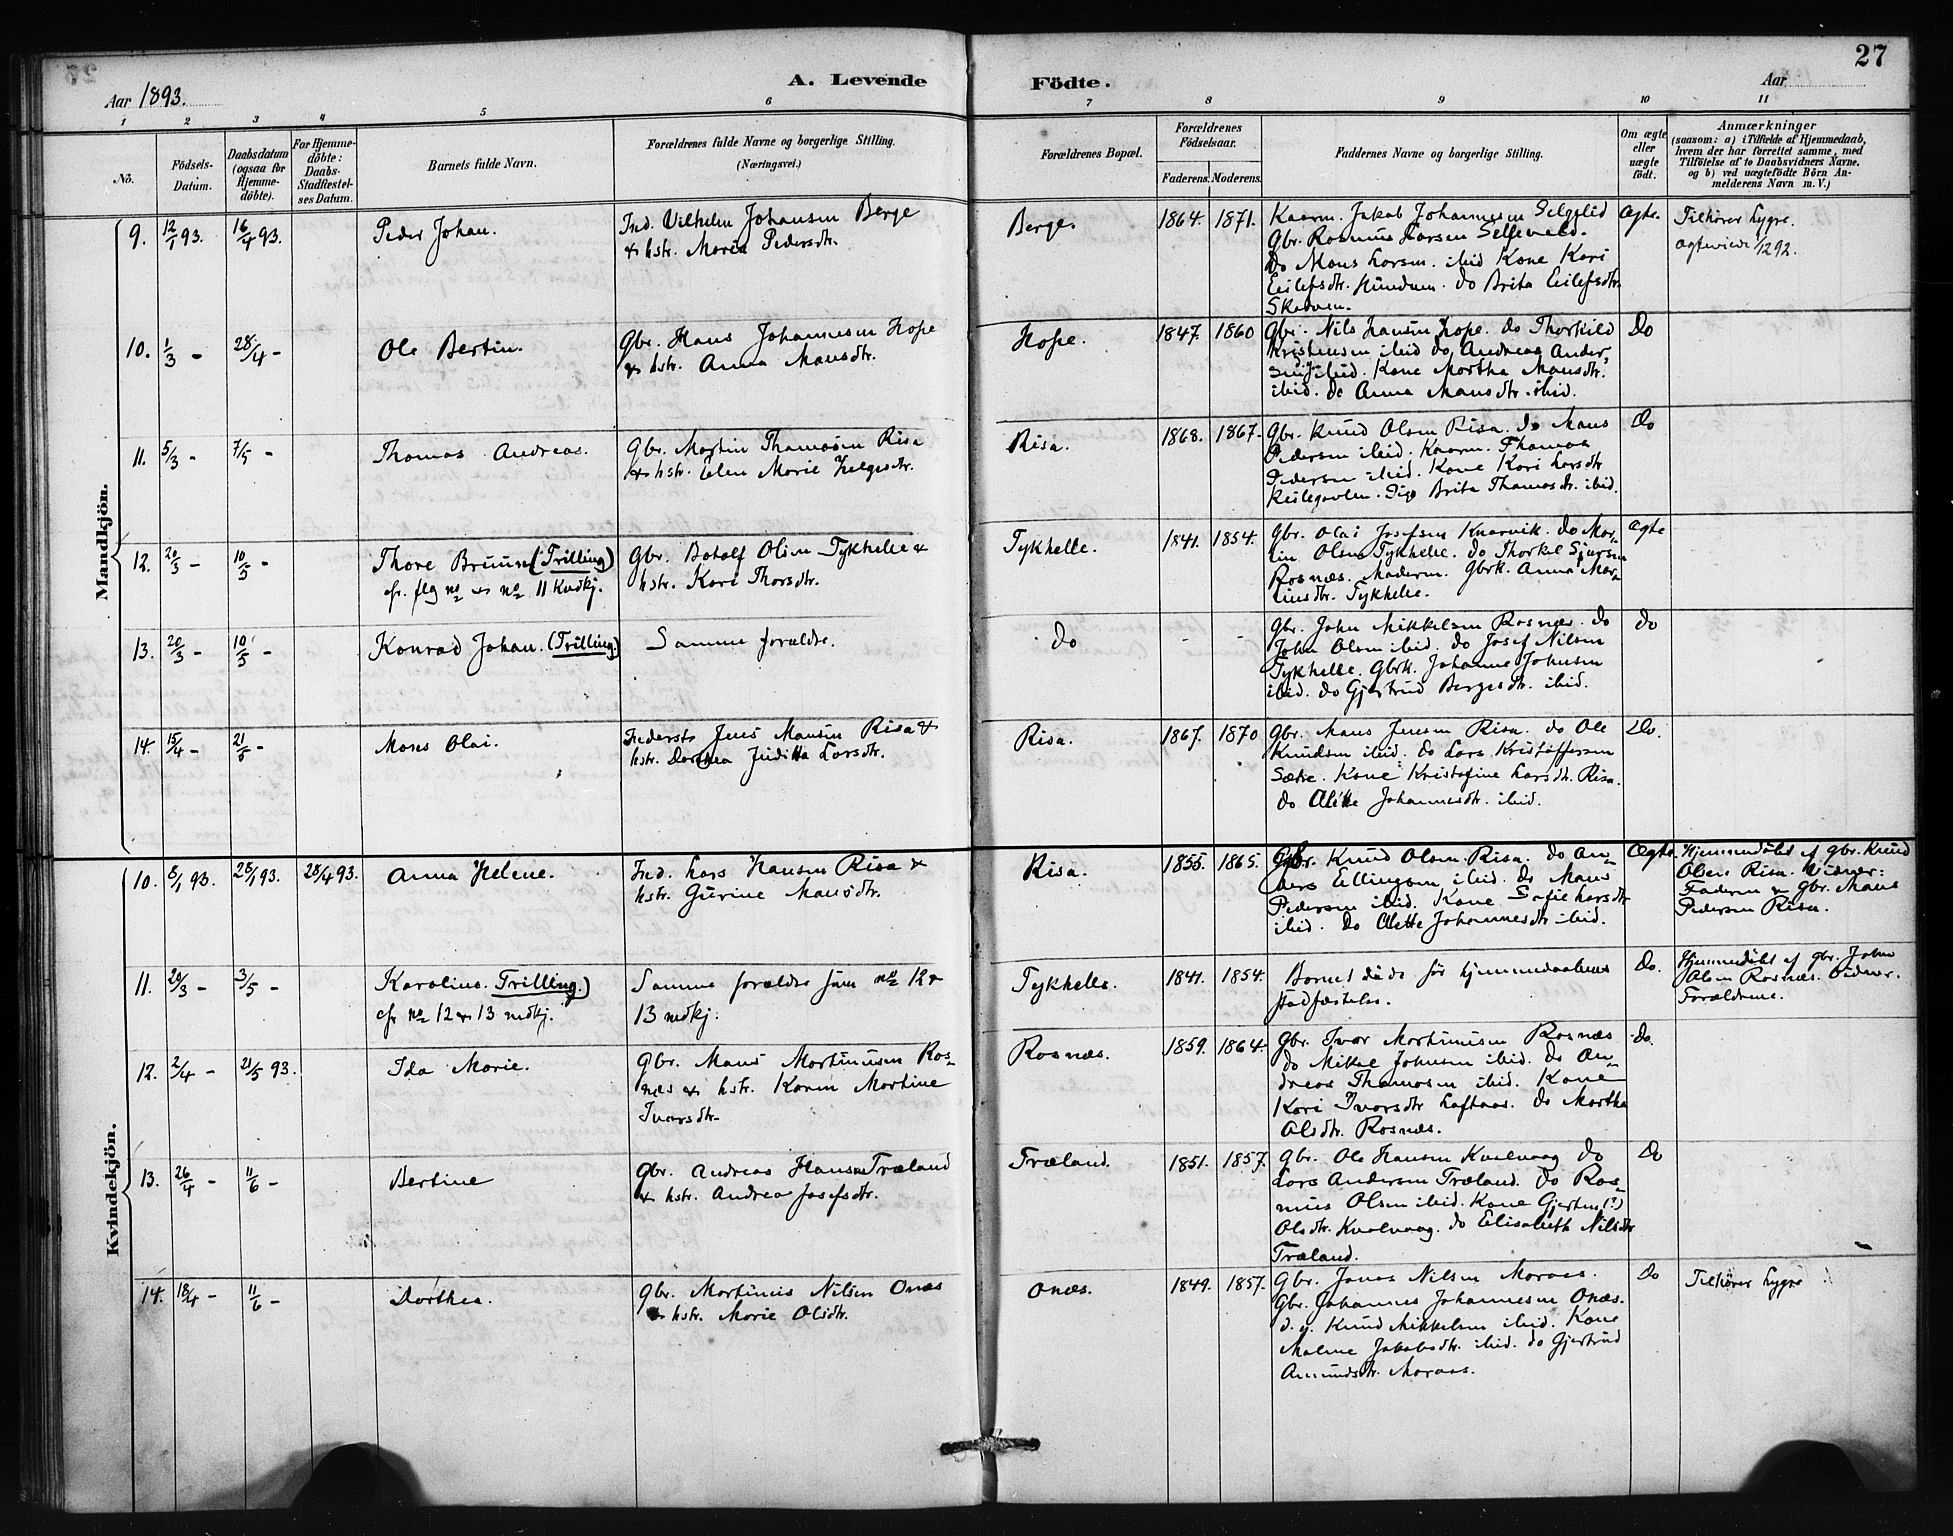 27
Aar 1893.
A. Levende Födte.
Aar
1 2 3 4 5 6 7 8 9 10 11
No.
Födsels-Datum.
Daabsdatum (ogsaa for Hjemme-döbte).
For Hjemme-döbte: Daabs-Stadfæstel-ses Datum.
Barnets fulde Navn.
Forældrenes fulde Navne og borgerlige Stilling.
(Næringsvei.)
Forældrenes Bopæl.
Forældrenes Födselsaar.
Faderens. Moderens.
Faddernes Navne og borgerlige Stilling.
Om ægte eller uægte födt.
Anmærkninger
(saasom: a) i Tilfælde af Hjemmedaab,
hvem der har forrettet samme, med
Tilföielse af to Daabsvidners Navne,
og b) ved uægtefödte Börn An-
melderens Navn m. V.)
Mandkjön.
9. 12/1 93. 16/4 93. Peder Johan.
Ind. Vilhelm Johansen Berge
& hstr. Maria Pedersdtr.
Berge. 1864. 1871.
Kaarm. Jakob Johannesen
Gbr. Rasmus Larsen
Do Mons Larsen. ibid Kone Kari
Eilefsdtr. do Brita Eilefsdtr.
Ægte. Tilhører Lygre.
10. 1/3 - 28/4 - Ole Bertin.
Gbr. Hans Johannesen Hope
& hstr. Anna Mansdtr.
Hope. 1847. 1860
Gbr. Nils Hansen Hope. do Thorkild
Kristensen ibid do Andreas Ander-
sen ibid. Kone Martha Mansdtr.
ibid. do Anna Mansdtr. ibid.
Do
11. 5/3 - 7/5 - Thomas Andreas.
Gbr. Martin Thomasen Risa
& hstr. Elen Marie Helgesdtr.
Risa. 1868. 1867.
Gbr. Knud Olsen Risa. do Mans
Pedersen ibid. Kaarm. Thomas
Pedersen ibid. Kone Kari Larsdtr
Pige Brita Thomasdtr. ibid.
Do
12. 20/3 - 10/5 - Thore Bruun (Trilling)
cfr. flg no & no 11 Kvdkj.
Gbr. Botolf Olsen Tykhelle &
hstr. Kari Thorsdtr.
Tykhelle. 1841. 1854.
Gbr. Olai Josefsen Knarvik. do Mar-
tin Olsen Tykhelle. do Thorkel Sjursen
Rosnæs. Maderm. Gbrk. Anna Mar-
tinsdtr. Tykhelle.
Ægte
13. 20/3 - 10/5 - Konrad Johan. (Trilling.)
Samme forældre.
Do - -
Gbr. John Mikkelsen Rosnæs. do
John Olsen ibid. do Josef Nilsen
Tykhelle. Gbrk. Johanne Johnsen
ibid. do Gjertrud Bergesdtr. ibid.
do
14. 15/4 - 21/5 - Mons Olai.
Jens Mansen Risa &
hstr. Dorthea Juditta Larsdtr.
Risa. 1867. 1870
Gbr. Mans Jensen Risa. do Ole
Knudsen ibid. do Lars Kristoffersen
Sætre. Kone Kristofine Larsdtr. Risa.
do Alette Johannesdtr. ibid.
Do.
Kvindekjön.
10. 8/1 93. 28/1 93. 28/4 93. Anna Helene.
Ind. Lars Hansen Risa &
hstr. Gurine Mansdtr.
Risa. 1855. 1865.
Gbr. Knud Olsen Risa. do An-
ders Ellingsen ibid. do Mans
Pedersen ibid. Kone Sofie Larsdtr
ibid. do Alette Johannesdtr ibid.
Ægte.
Hjemmedøbt af gbr. Knud
Olsen Risa. Vidner:
Faderen & gbr. Mans
Pedersen Risa.
11. 20/3 - 3/5 - Karoline. Trilling.)
cfr no 12 & 13 mdkj.
Samme forældre som no 12 &
13 mdkj.
Tykhelle. 1841. 1854.
Barnet døde før hjemmedaabens
stadfæstelse.
Do.
Hjemmedøbt af gbr. John
Olsen Rosnæs. Vidner.
Forældrene.
12. 2/4 - 21/5 93. Ida Marie.
Gbr. Mans Mortinusen Ros-
næs & hstr. Karen Martine
Ivarsdtr.
Rosnæs. 1859. 1864.
Gbr. Ivar Mortinusen Rosnæs
do Mikkel Johnsen ibid. do An-
dreas Thomasen ibid. Kone
Kari Ivarsdtr Loftaas. do Martha
Olsdtr. Rosnæs.
Do.
13. 26/4 - 11/6 - Bertine
Gbr. Andreas Hansen Træland
& hstr. Andrea Josefsdtr.
Træland. 1851. 1857.
Gbr. Ole Hansen Kvalvaag do
Lars Andersen Træland. Do Ras-
mus Olsen ibid. Kone Gjertine (?)
Olsdtr. Kvalvaag. do Elisabeth Nilsdtr
Træland.
Do
14. 18/4 - 11/6 - Dorthea.
Gbr. Mortinus Nilsen Onæs
& hstr. Marie Olsdtr.
Onæs. 1849. 1857.
Gbr. Jonas Nilsen Moraas.
Gbr. Johannes Johannesen Onæs.
Knud Mikkelsen ibid. Kone
Malene Jakobsdtr. ibid. do Gjertrud
Amundsdtr. Moraas.
Do Tilhører Lygre